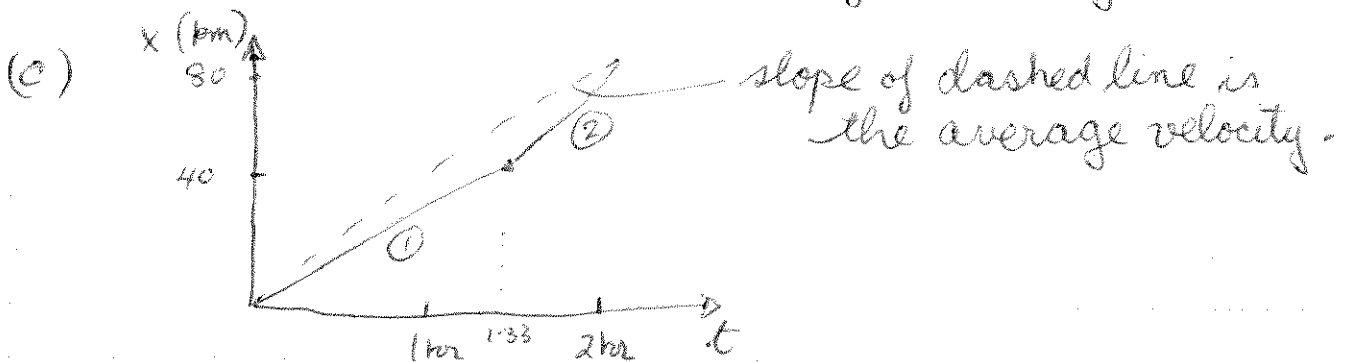 (c)
x (km)
80
slope of dashed line is
the average velocity.
②
40
①
1 hr 1.33 2 hr t